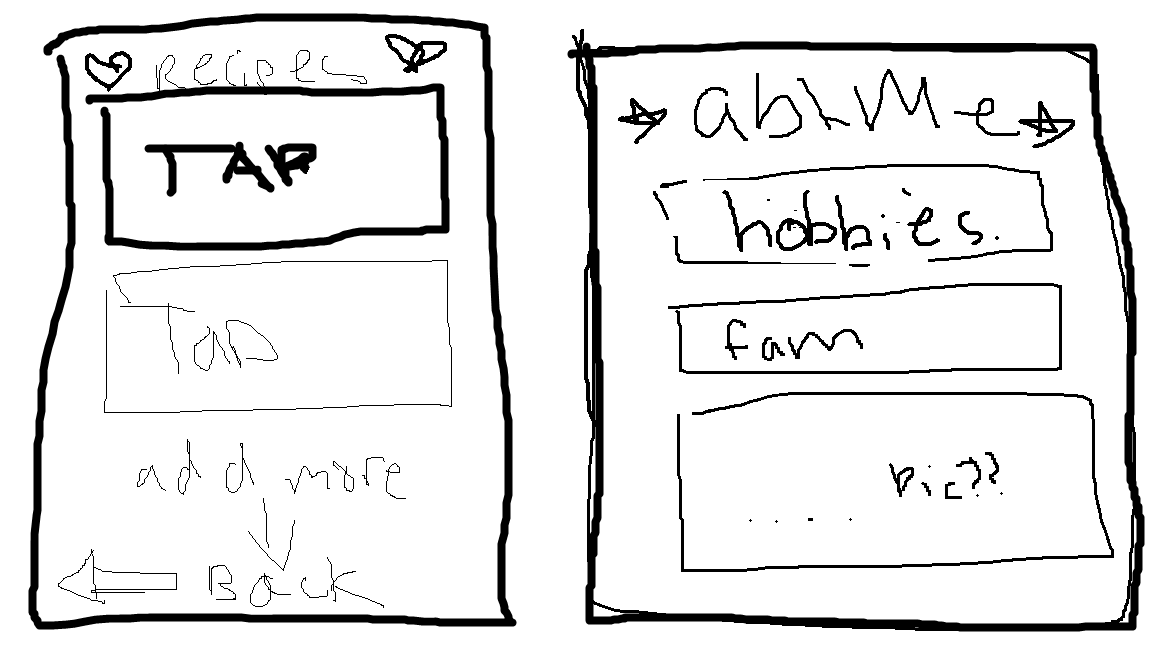 Recipes
TAP
Tap
add more
Back
abt Me
hobbies.
fam
.... pic??